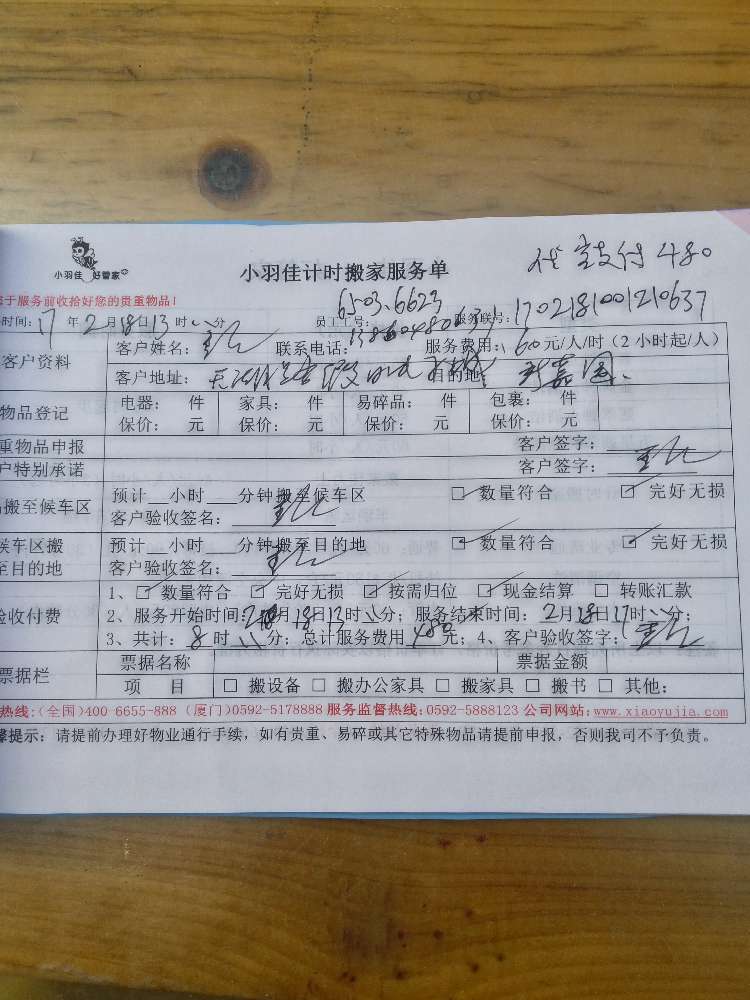 代支付480
小羽佳 好管家
小羽佳计时搬家服务单
于服务前收拾好您的贵重物品!
6503.6623
时间: 17 年 2 月 18 日 13 时 分 员工工号: 服务联号: 1702181001210637
客户资料 客户姓名: 联系电话: 服务费用: 60 元/人/时 (2 小时起/人)
客户地址: 目的地:
物品登记 电器: 件 家具: 件 易碎品: 件 包裹: 件
保价: 元 保价: 元 保价: 元 保价: 元
重物品申报 客户签字:
户特别承诺 客户签字:
搬至候车区 预计 小时 分钟搬至候车区 ☑ 数量符合 ☑ 完好无损
客户验收签名:
候车区搬 预计 小时 分钟搬至目的地 ☑ 数量符合 ☑ 完好无损
至目的地 客户验收签名:
1、☑ 数量符合 ☑ 完好无损 ☑ 按需归位 ☑ 现金结算 □ 转账汇款
验收付费 2、服务开始时间: 2月18日13时 分; 服务结束时间: 2月18日17时 分;
3、共计: 8 时 分; 总计服务费用 480 元; 4、客户验收签字:
票据栏 票据名称 票据金额
项 目 □ 搬设备 □ 搬办公家具 □ 搬家具 □ 搬书 □ 其他:
热线:(全国)400-6655-888 (厦门)0592-5178888 服务监督热线:0592-5888123 公司网站: www.xiaoyujia.com
馨提示: 请提前办理好物业通行手续, 如有贵重、易碎或其它特殊物品请提前申报, 否则我司不予负责。